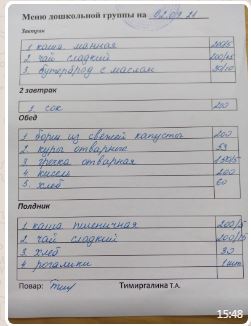 Меню дошкольной группы на 02.09.21
Завтрак
1. каша манная 200/5
2. чай сладкий 200/15
3. бутерброд с маслом 30/10
2 завтрак
1. сок 200
Обед
1. борщ из свежей капусты 200
2. куры отварные
3. гречка отварная 150/5
4. кисель 200
5. хлеб 60
Полдник
1. каша пшеничная 200/5
2. чай сладкий 200/15
3. хлеб 30
4. рогалики 1шт
Повар: Тимиргалина Т.А.
15:48